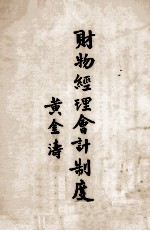 財物經理會計制度
黃金濤